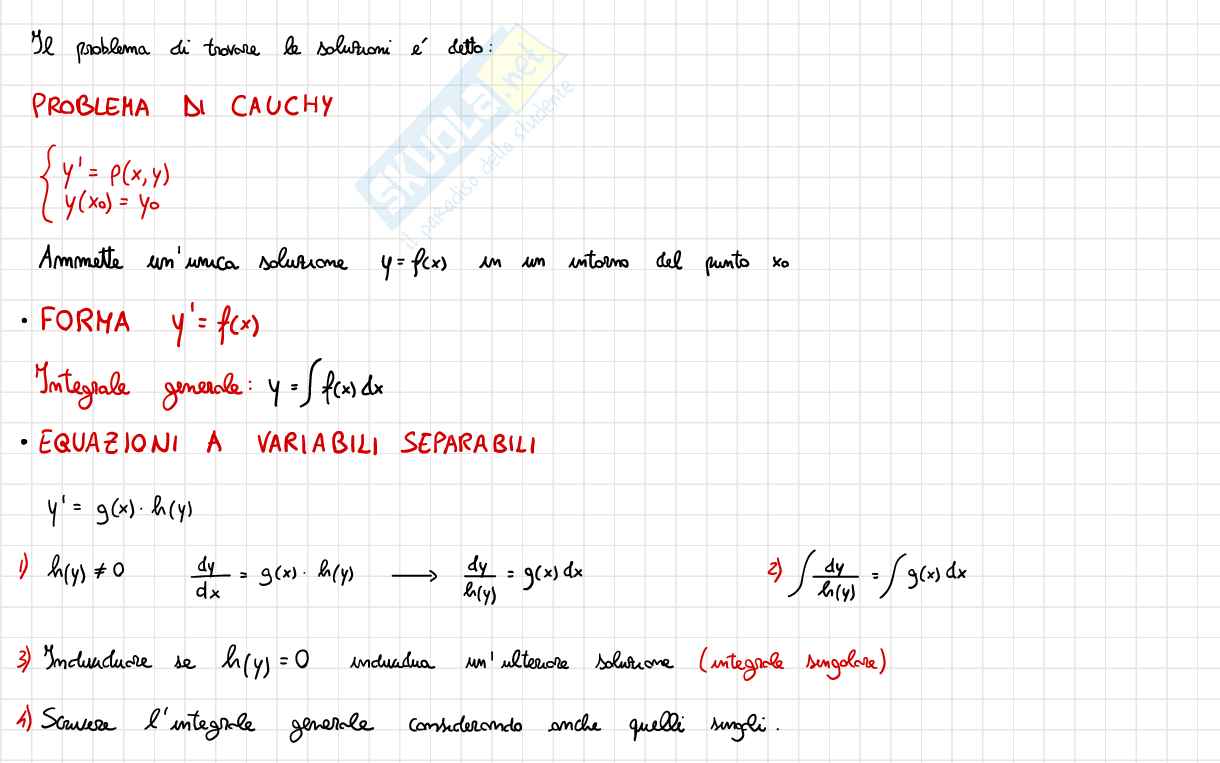 Il problema di trovare le soluzioni é detto:
PROBLEMA DI CAUCHY
{ y' = f(x,y)
y(x₀) = y₀
Ammette un'unica soluzione y = f(x) in un intorno del punto x₀
• FORMA y' = f(x)
Integrale generale: y = ∫ f(x) dx
• EQUAZIONI A VARIABILI SEPARABILI
y' = g(x) · h(y)
1) h(y) ≠ 0 dy/dx = g(x) · h(y) ⟶ dy/h(y) = g(x) dx 2) ∫ dy/h(y) = ∫ g(x) dx
3) Individuare se h(y) = 0 individua un'ulteriore soluzione (integrale singolare)
4) Scrivere l'integrale generale considerando anche quelli singoli.
SKUOLA.net
il paradiso dello studente